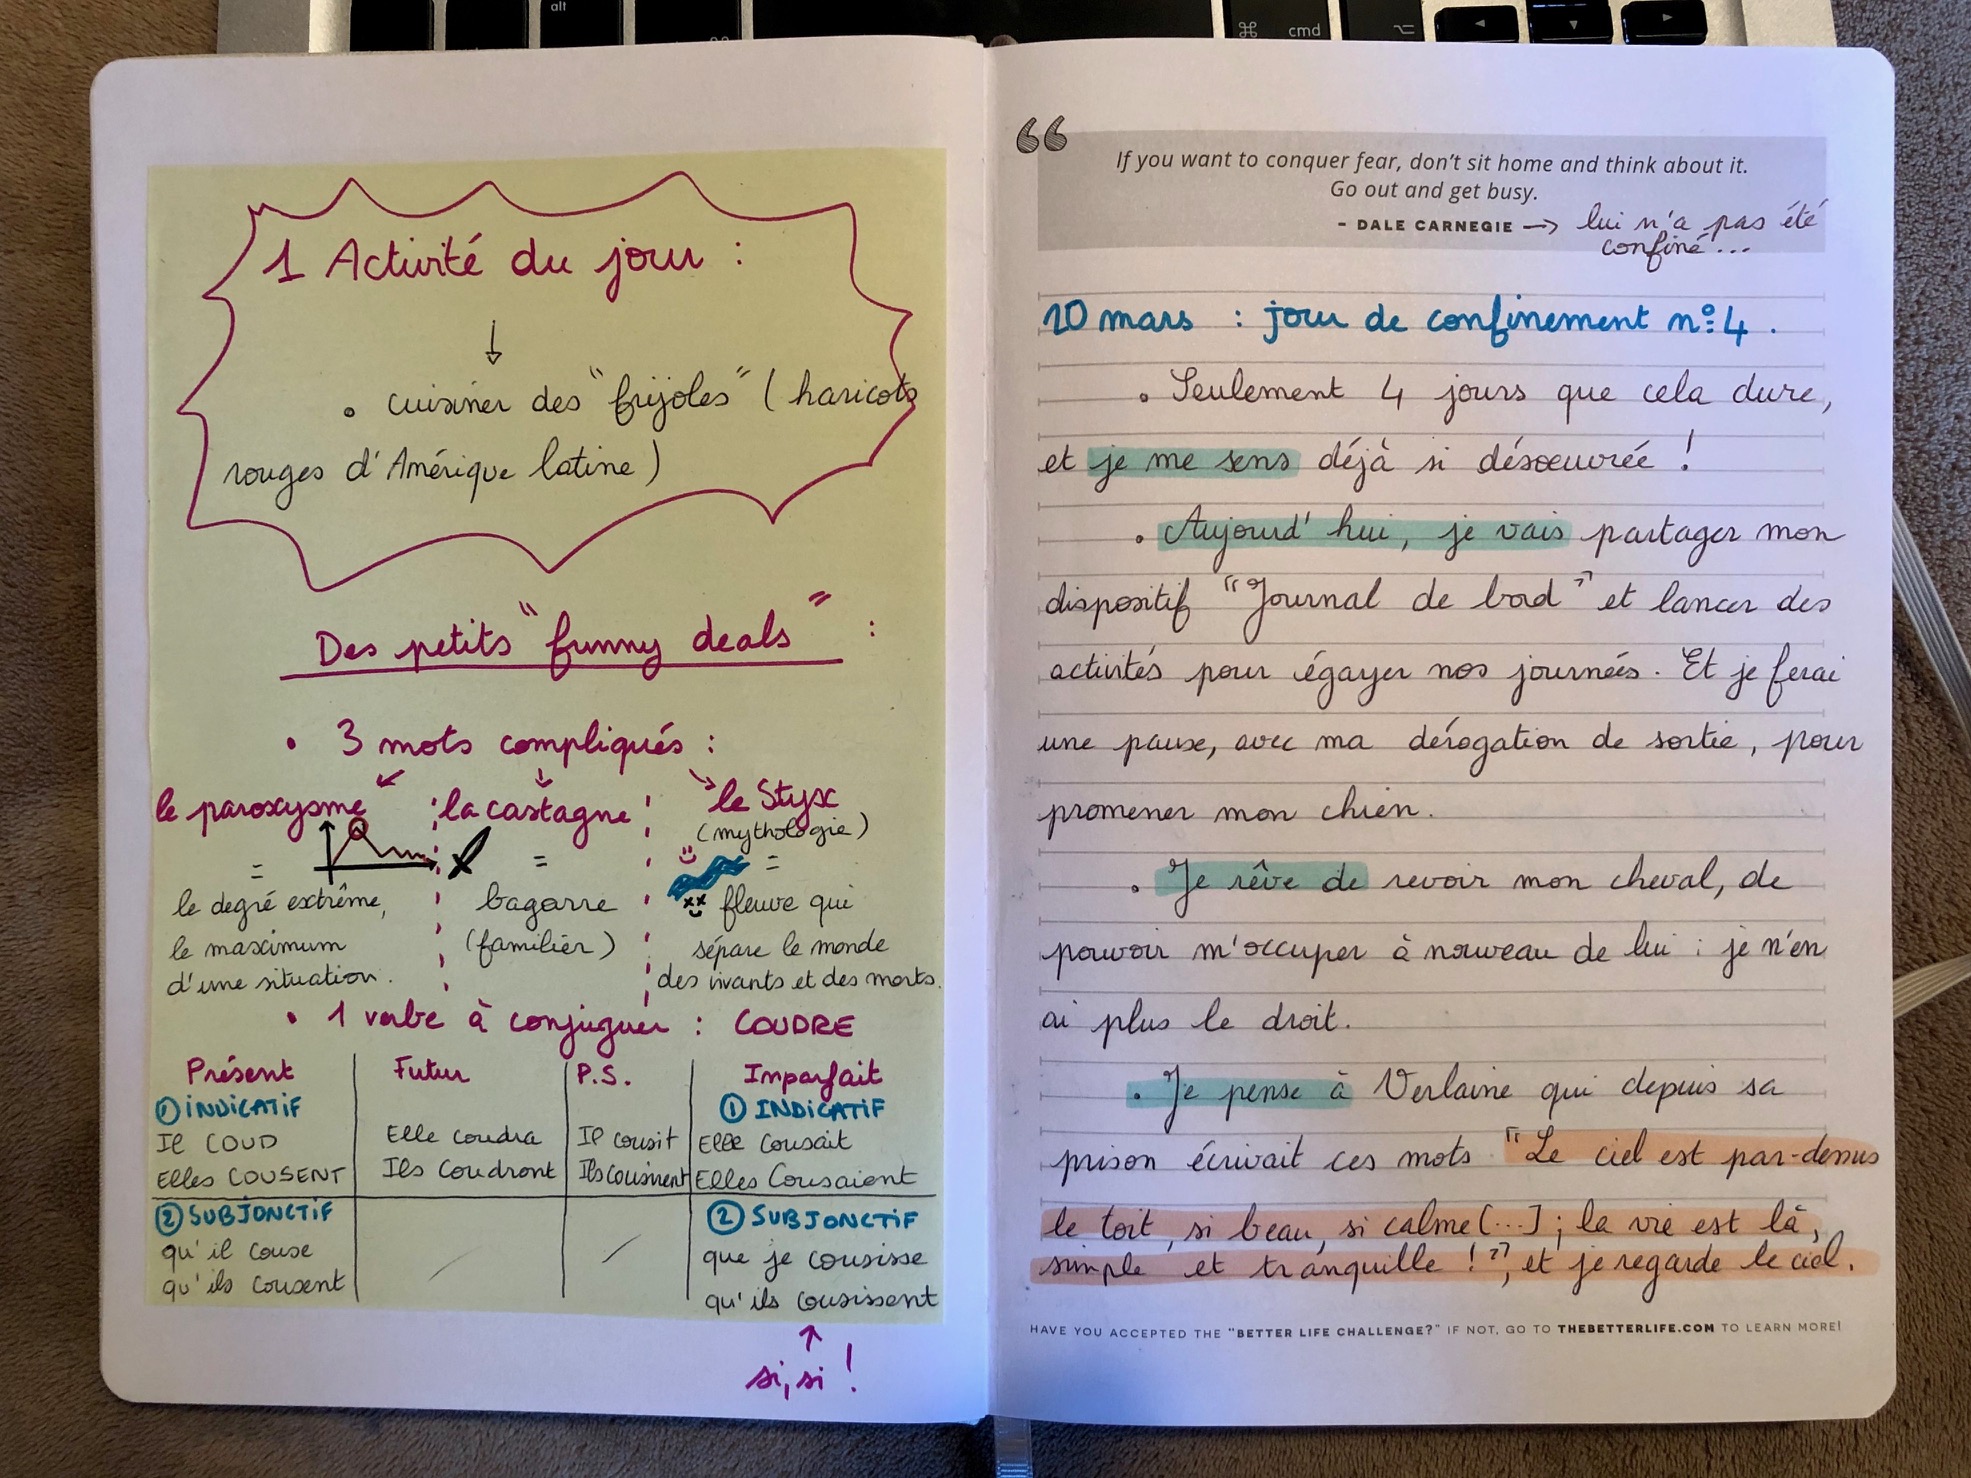 alt
⌘ cmd
⌥
1 Activité du jour :
↓
• cuisiner des "frijoles" (haricots
rouges d'Amérique latine)
Des petits "funny deals" :
• 3 mots compliqués :
le paroxysme
=
le degré extrême,
le maximum
d'une situation.
la castagne
=
bagarre
(familier)
le Styx
(mythologie)
=
fleuve qui
sépare le monde
des vivants et des morts.
• 1 verbe à conjuguer : COUDRE
Présent Futur P.S. Imparfait
① INDICATIF ① INDICATIF
Il COUD Elle coudra Il cousit Elle Cousait
Elles COUSENT Ils Coudront Ils cousirent Elles Cousaient
② SUBJONCTIF ② SUBJONCTIF
qu'il couse que je cousisse
qu'ils cousent qu'ils cousissent
↑
si, si !
“
If you want to conquer fear, don't sit home and think about it.
Go out and get busy.
- DALE CARNEGIE → lui n'a pas été
confiné...
20 mars : jour de confinement n° 4.
• Seulement 4 jours que cela dure,
et je me sens déjà si désœuvrée !
• Aujourd'hui, je vais partager mon
dispositif "Journal de bord" et lancer des
activités pour égayer nos journées. Et je ferai
une pause, avec ma dérogation de sortie, pour
promener mon chien.
• Je rêve de revoir mon cheval, de
pouvoir m'occuper à nouveau de lui : je n'en
ai plus le droit.
• Je pense à Verlaine qui depuis sa
prison écrivait ces mots "Le ciel est par-dessus
le toit, si beau, si calme [...] ; la vie est là,
simple et tranquille !", et je regarde le ciel.
HAVE YOU ACCEPTED THE "BETTER LIFE CHALLENGE?" IF NOT, GO TO THEBETTERLIFE.COM TO LEARN MORE!